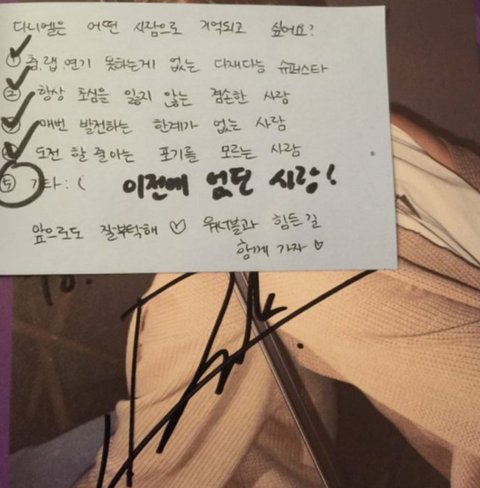 다니엘은 어떤 사람으로 기억되고 싶어요?
① 춤.랩.연기 못하는게 없는 다재다능 슈퍼스타
② 항상 초심을 잃지 않는 겸손한 사람
매번 발전하는 한계가 없는 사람
도전 할 줄 아는 포기를 모르는 사람
⑤ 기타 : ( 이전에 없던 사람!
앞으로도 잘부탁해 ♡ 워너블과 힘든길
함께 가자 ♡
To.